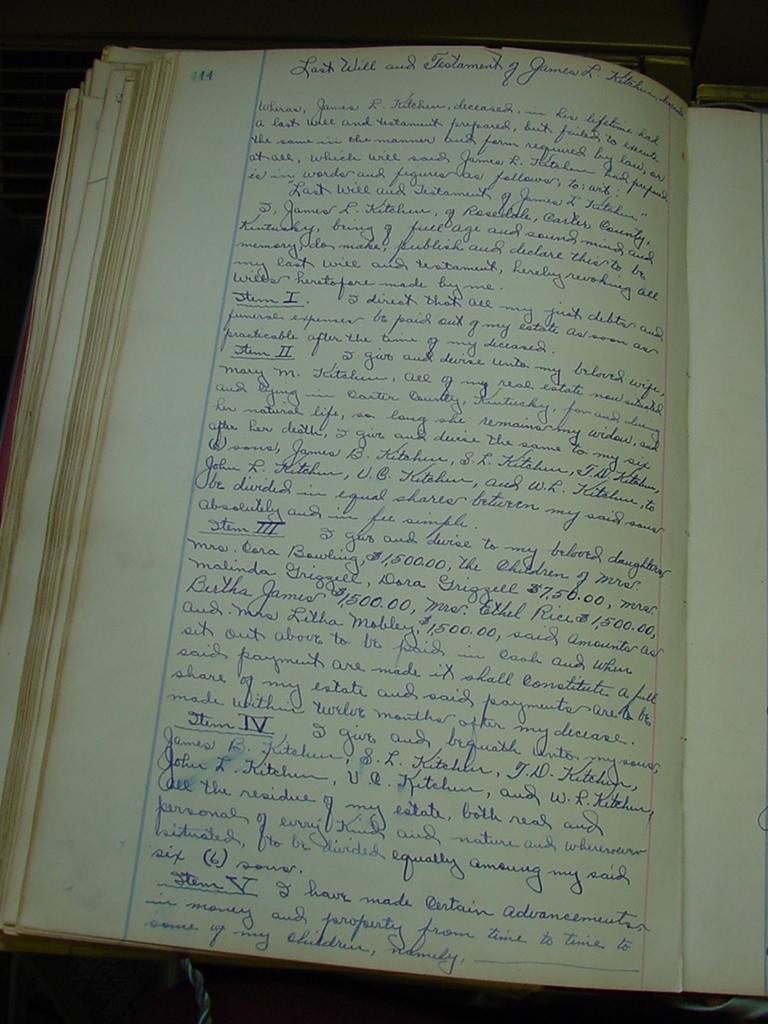 444
Last Will and Testament of James L. Kitchen,
Whereas, James L. Kitchen, deceased, in his lifetime had
a last will and testament prepared, but failed to execute
the same in the manner and form required by law, or
at all, which will said James L. Kitchen had prepared
is in words and figures as follows, to: wit:
"Last Will and Testament of James L. Kitchen"
I, James L. Kitchen, of Rosedale, Carter County,
Kentucky, being of full age and sound mind and
memory, do make, publish and declare this to be
my last will and testament, hereby revoking all
wills heretofore made by me.
Item I. I direct that all my just debts and
funeral expenses be paid out of my estate as soon as
practicable after the time of my deceased.
Item II I give and devise unto my beloved wife,
Mary M. Kitchen, all of my real estate now situated
and lying in Carter County, Kentucky, for and during
her natural life, so long she remains my widow, and
after her death, I give and devise the same to my six
(6) sons, James B. Kitchen, S. L. Kitchen, T. D. Kitchen,
John L. Kitchen, V. C. Kitchen, and W. L. Kitchen, to
be divided in equal shares between my said sons
absolutely and in fee simple.
Item III I give and devise to my beloved daughters
Mrs. Cora Bowling, $1,500.00, the Children of Mrs.
Malinda Griggell, Dora Griggell $7,50.00, Mrs.
Birtha James $1,500.00, Mrs. Ethel Rice $1,500.00,
and Mrs Litha Mobley, $1,500.00, said amounts as
sit out above to be paid in Cash and when
said payment are made it shall Constitute a full
share of my estate and said payments are to be
made within twelve months after my decease.
Item IV I give and bequeath unto my sons,
James B. Kitchen, S. L. Kitchen, T. D. Kitchen,
John L. Kitchen, V. C. Kitchen, and W. L. Kitchen,
all the residue of my estate, both real and
personal of every kind and nature and wheresoever
situated, to be divided equally among my said
six (6) sons.
Item V I have made Certain advancements
in money and property from time to time to
some of my Children, namely,